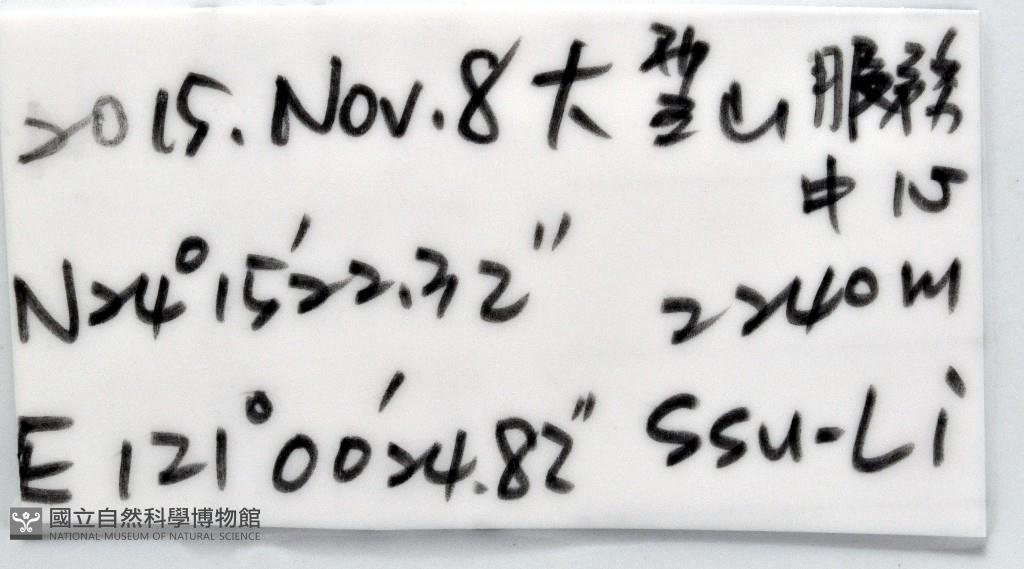 2015. Nov. 8 大雪山服務
中心
N24°15'22.32" 2240m
E 121°00'24.82" SSu-Li
國立自然科學博物館
NATIONAL MUSEUM OF NATURAL SCIENCE